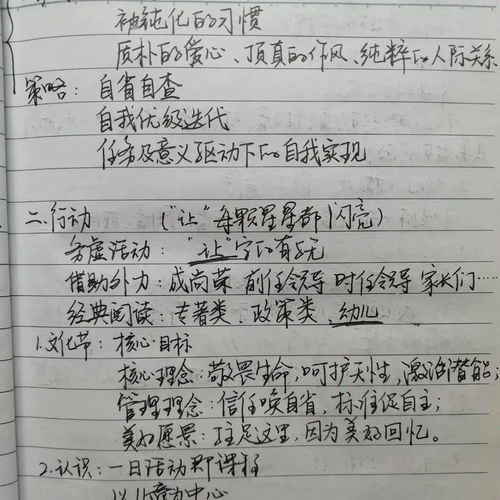 被钝化的习惯
质朴的爱心、顶真的作风、纯粹的人际关系
策略：自省自查
自我优级迭代
任务及意义驱动下的自我实现
二.行动 （"让"每颗星星都闪亮）
务虚活动："让"字的有与无
借助外力：成尚荣 前任领导 时任领导 家长们……
经典阅读：专著类、政策类、幼儿
1.文化节：核心目标
核心理念：敬畏生命，呵护天性，激活潜能；
管理理念：信任唤自省，标准促自主；
美好愿景：驻足这里，因为美好回忆。
2.认识：一日活动即课程
以儿童为中心